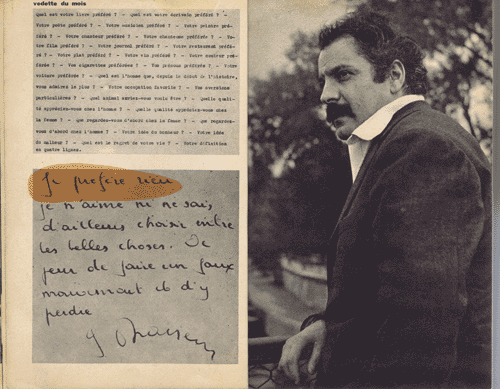 vedette du mois
quel est votre livre préféré ? - quel est votre écrivain préféré ? -
Votre poète préféré ? - Votre musicien préféré ? - Votre peintre pré-
féré ? - Votre chanteur préféré ? - Votre chanteuse préférée ? - Vo-
tre film préféré ? - Votre journal préféré ? - Votre restaurant préfé-
ré ? - Votre plat préféré ? - Votre vin préféré ? - Votre numéro pré-
féré ? - Vos cigarettes préférées ? - Vos prénoms préférés ? - Votre
voiture préférée ? - Quel est l'homme que, depuis le début de l'histoire,
vous admirez le plus ? - Votre occupation favorite ? - Vos aversions
particulières ? - Quel animal auriez-vous voulu être ? - Quelle quali-
té appréciez-vous chez l'homme ? - Quelle qualité appréciez-vous chez
la femme ? - Que regardez-vous d'abord chez la femme ? - Que regardez-
vous d'abord chez l'homme ? - Votre idée du bonheur ? - Votre idée
du malheur ? - Quel est le regret de votre vie ? - Votre définition
en quatre lignes.
Je préfère rien
je n'aime ni ne sais,
d'ailleurs choisir entre
les belles choses. De
peur de faire un faux
mouvement et d'y
perdre
G Brassens